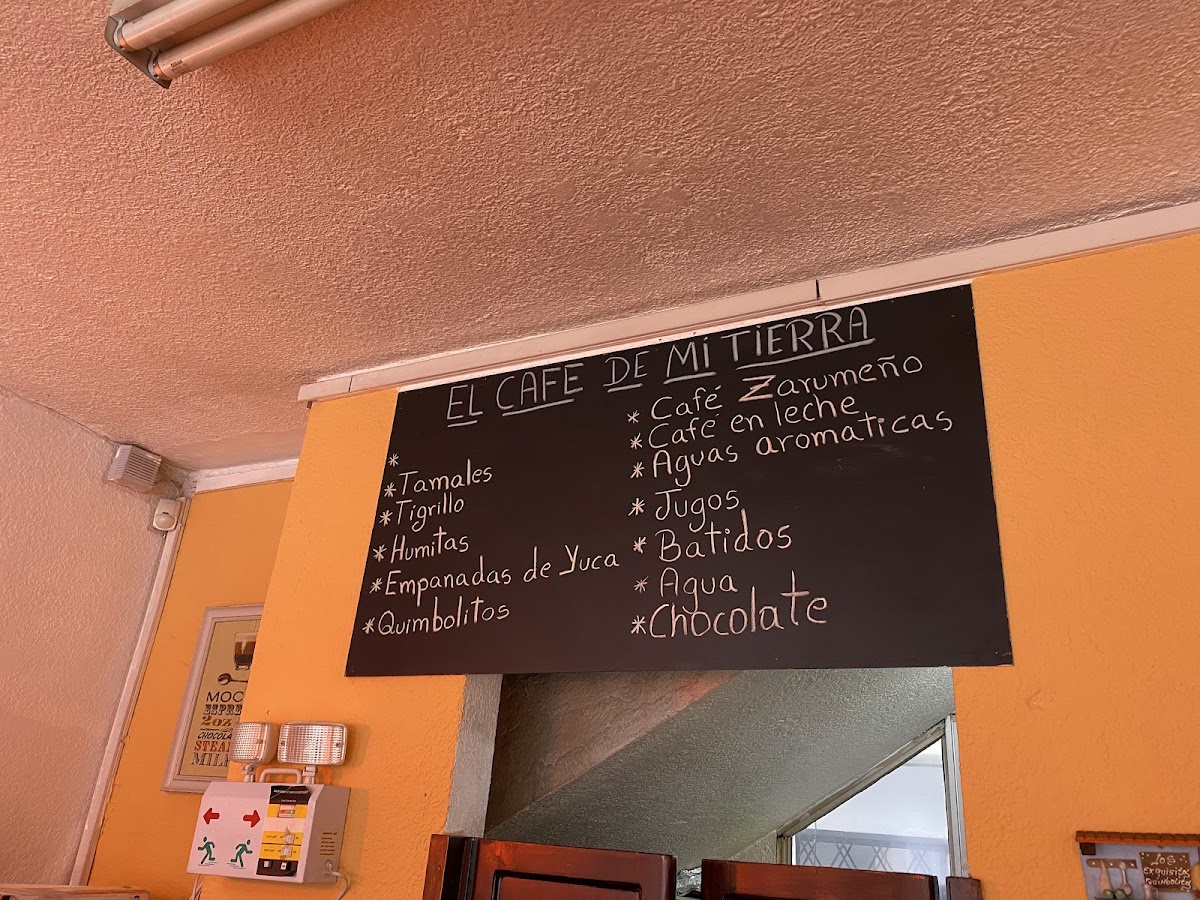 EL CAFE DE Mi TiERRA
*
* Tamales
* Tigrillo
* Humitas
* Empanadas de Yuca
* Quimbolitos
* Café Zarumeño
* Café en leche
* Aguas aromaticas
* Jugos
* Batidos
* Agua
* Chocolate
MOC
ESPRE
2oz
CHOCOLA
STEA
MILK
LOS
EXQUISITOS